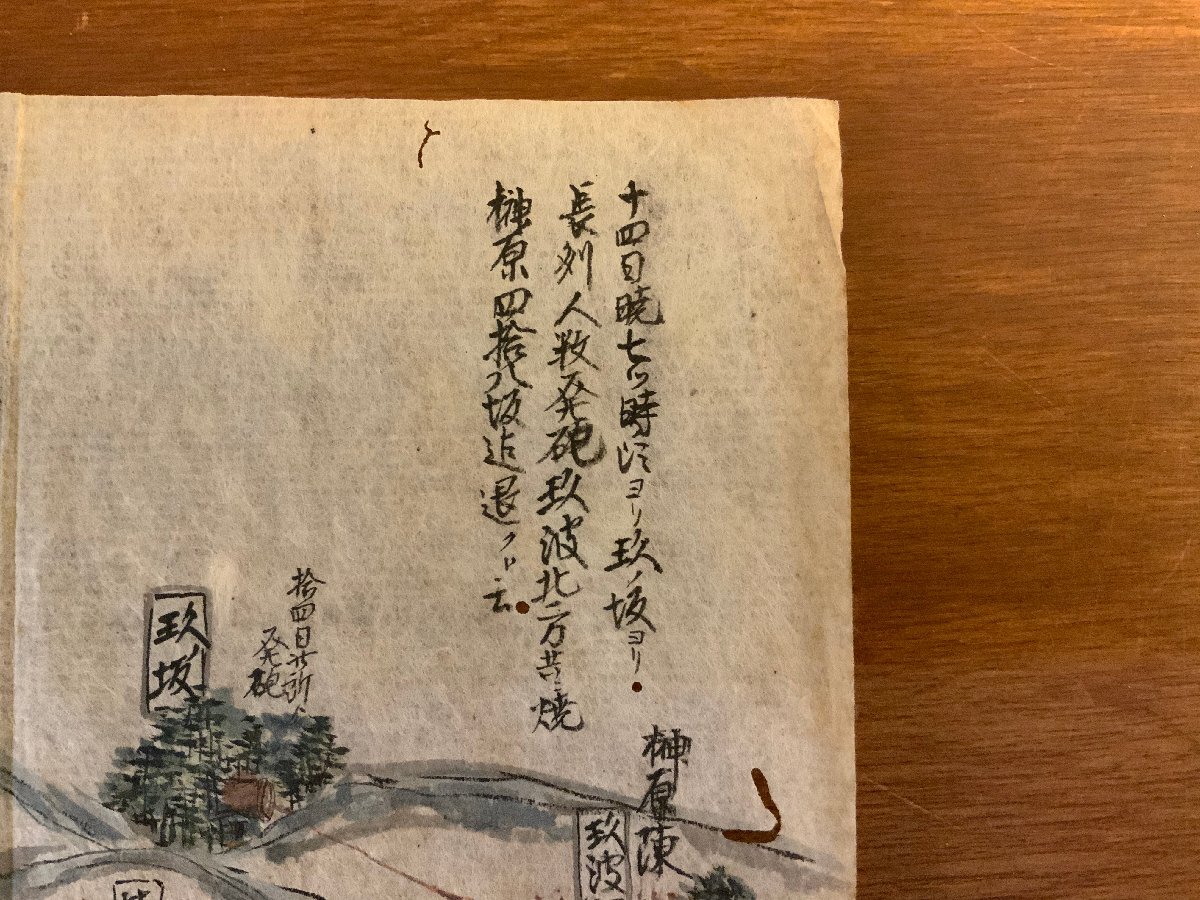 十四日暁七ツ時頃ヨリ玖ノ坂ヨリ
長州人数発砲玖波北二方共ニ焼
榊原四拾八坂迄退クト云
榊原陳
玖波
拾四日此所ゟ
発砲
玖ノ坂